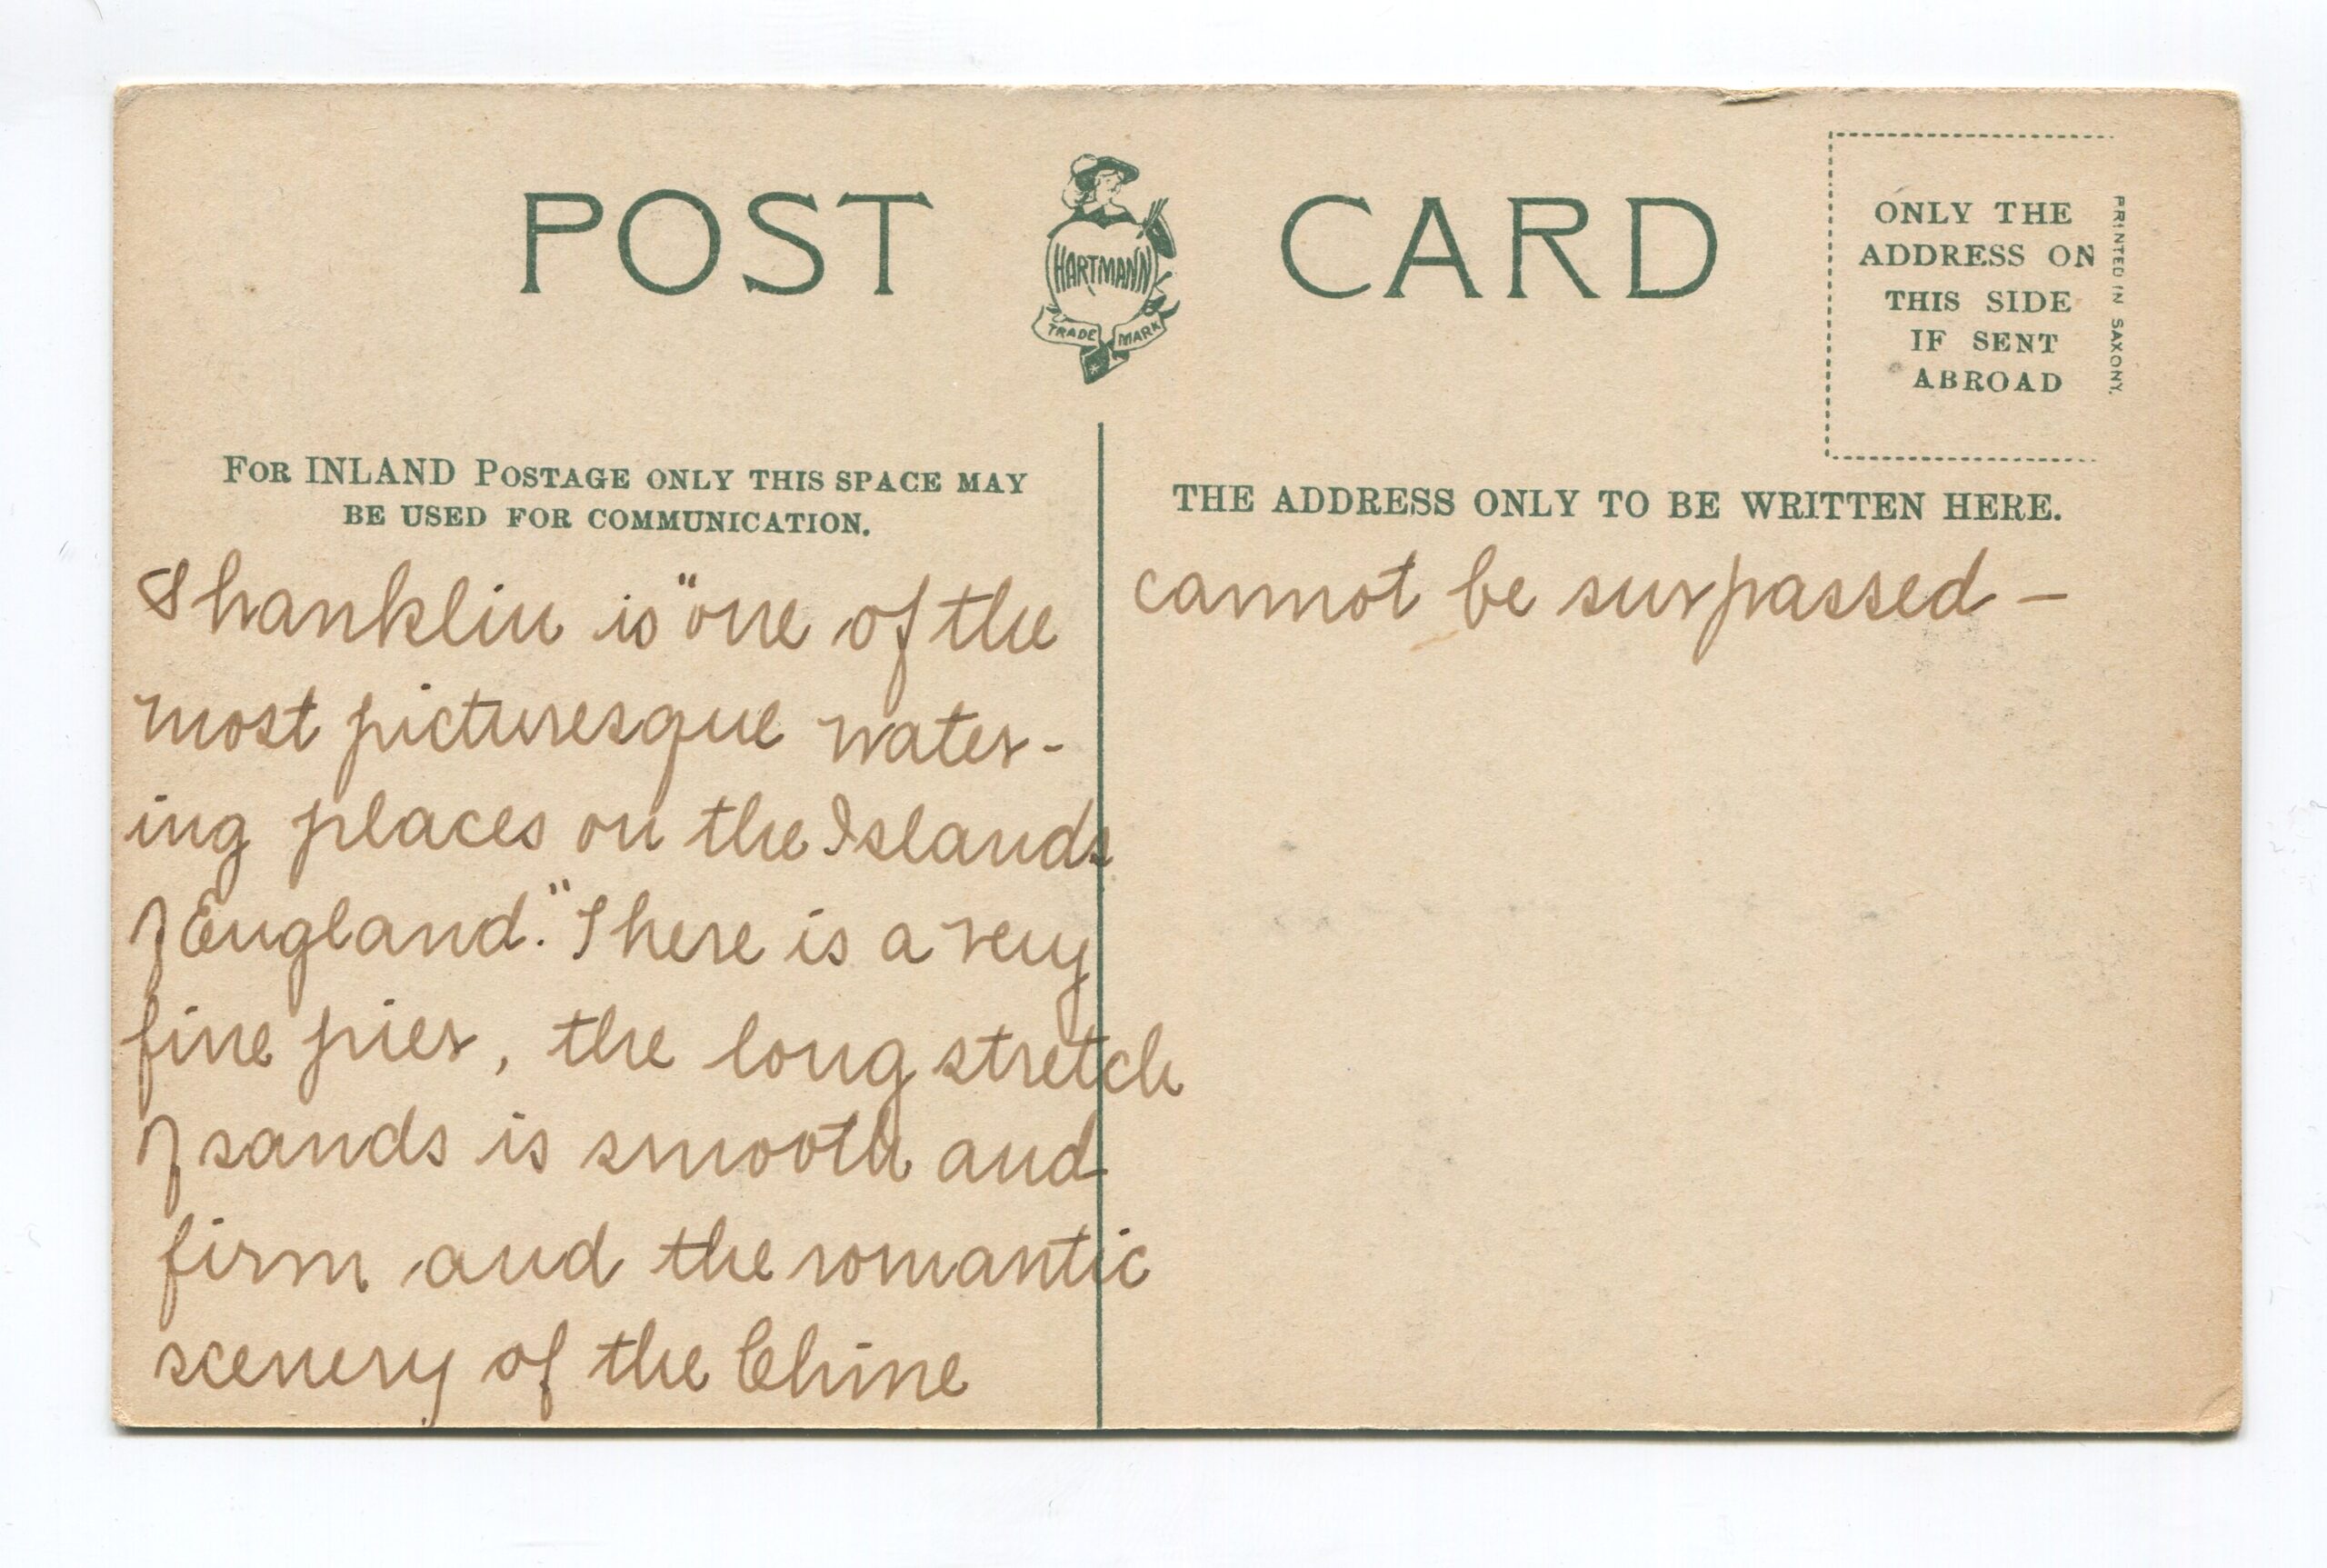 POST CARD
HARTMANN
TRADE MARK
ONLY THE
ADDRESS ON
THIS SIDE
IF SENT
ABROAD
PRINTED IN SAXONY.
FOR INLAND POSTAGE ONLY THIS SPACE MAY
BE USED FOR COMMUNICATION.
THE ADDRESS ONLY TO BE WRITTEN HERE.
Shanklin is "one of the
most picturesque water-
ing places on the Islands
of England." There is a very
fine pier, the long stretch
of sands is smooth and
firm and the romantic
scenery of the Chine
cannot be surpassed —